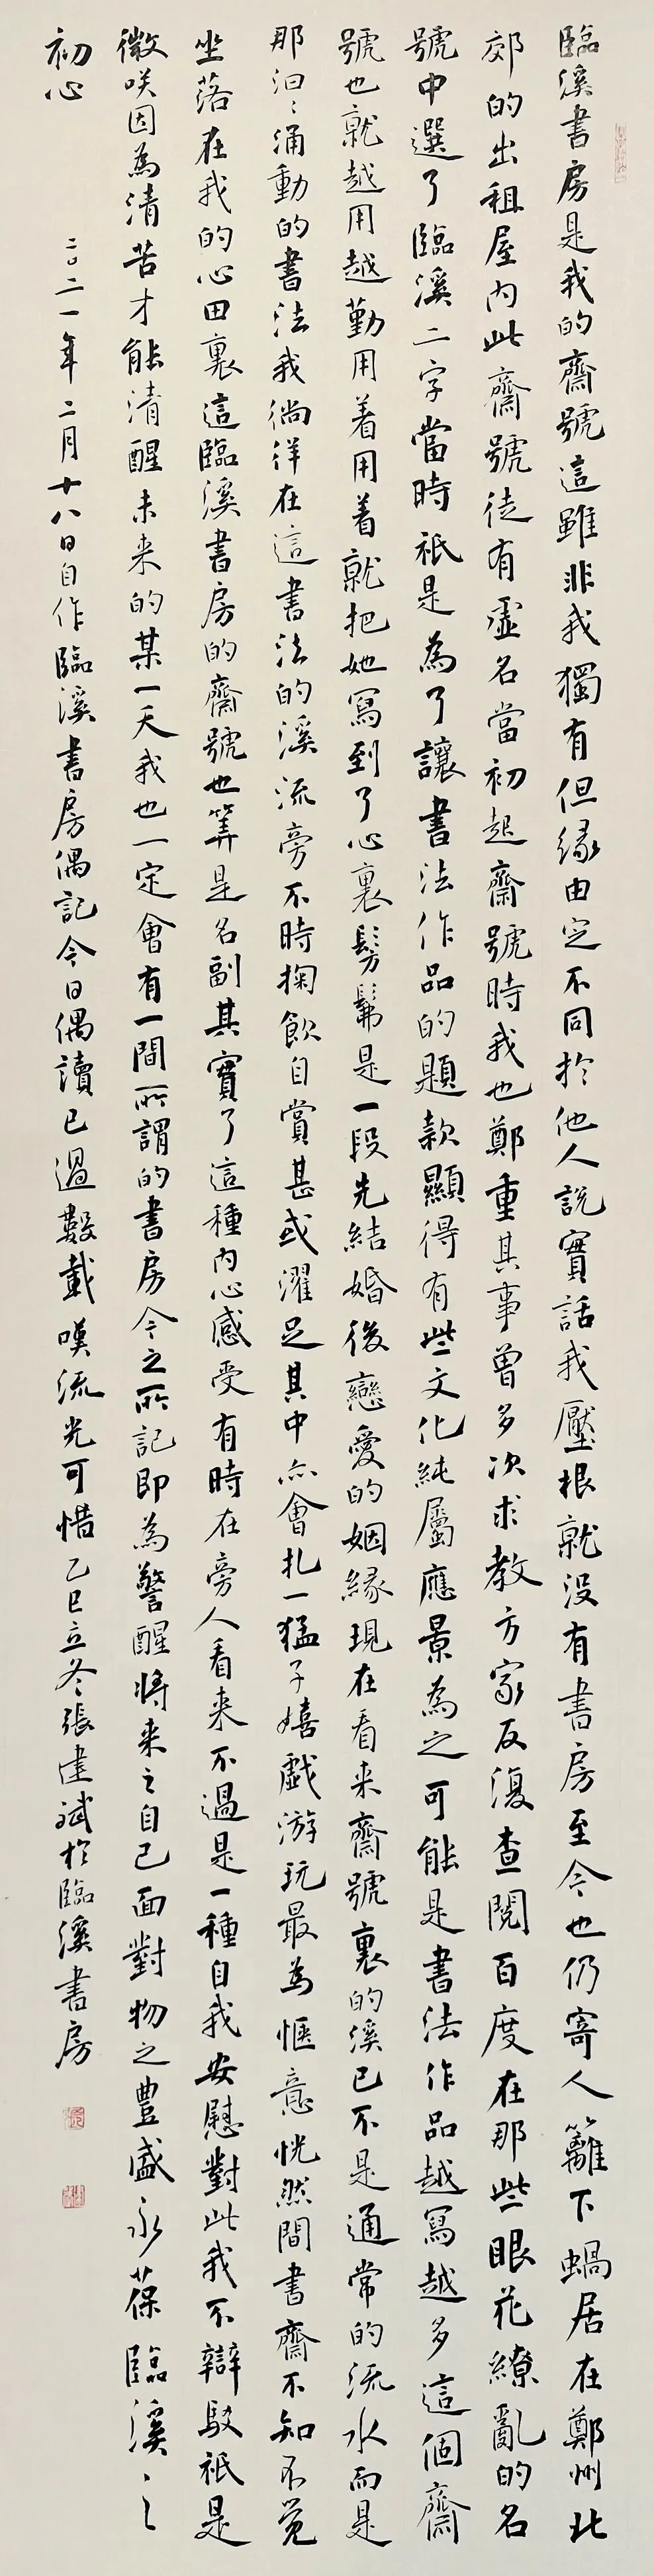 臨溪書房是我的齋號這雖非我獨有但緣由定不同於他人說實話我壓根就没有書房至今也仍寄人籬下蝸居在鄭州北
郊的出租屋内此齋號徒有虚名當初起齋號時我也鄭重其事曾多次求教方家反復查閱百度在那些眼花繚亂的名
號中選了臨溪二字當時祇是為了讓書法作品的題款顯得有些文化純屬應景為之可能是書法作品越寫越多這個齋
號也就越用越勤用着用着就把她寫到了心裏髣髴是一段先結婚後戀愛的姻緣現在看来齋號裏的溪已不是通常的流水而是
那汩〻涌動的書法我徜徉在這書法的溪流旁不時掬飲自賞甚或濯足其中亦會扎一猛子嬉戲游玩最為愜意恍然間書齋不知不覺
坐落在我的心田裏這臨溪書房的齋號也筭是名副其實了這種内心感受有時在旁人看来不過是一種自我安慰對此我不辯駁祇是
微咲因為清苦才能清醒未来的某一天我也一定會有一間所謂的書房今之所記即為警醒將来之自己面對物之豐盛永葆臨溪〻之
初心
二〇二一年二月十八日自作臨溪書房偶記今日偶讀已過數載嘆流光可惜乙巳立冬張建斌於臨溪書房